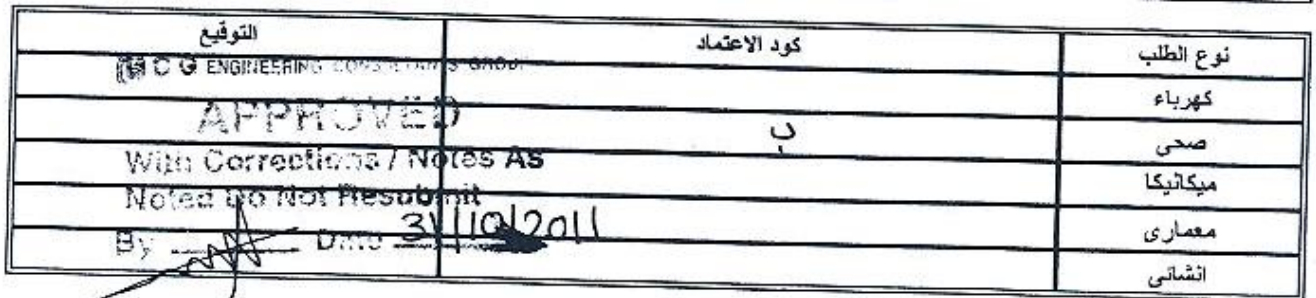 نوع الطلب كود الاعتماد التوقيع
كهرباء
صحى ب
ميكانيكا
معمارى
انشائى
ENGINEERING CONSULTANTS GROUP
APPROVED
With Corrections / Notes As
Noted Do Not Resubmit
By Date 31/10/2011